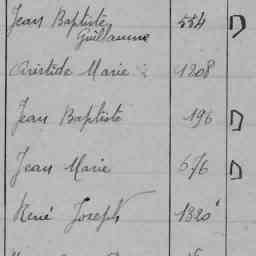 Jean Baptiste 554 D
Guillaume
Aristide Marie 1208
Jean Baptiste 196 D
Jean Marie 676 D
René Joseph 1320